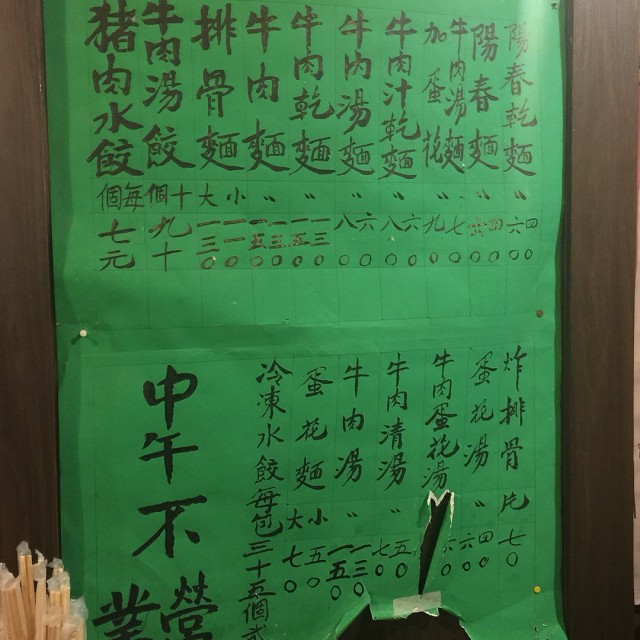 陽春乾麵 〃 四〇 六〇
陽春麵 〃 四〇 六〇
牛肉湯麵 加蛋花 〃 七〇 九〇
牛肉汁乾麵 〃 六〇 八〇
牛肉湯麵 〃 六〇 八〇
牛肉乾麵 〃 一三〇 一五〇
牛肉麵 〃 一三〇 一五〇
排骨麵 小 大 一一〇 一三〇
牛肉湯餃 十個 九十
豬肉水餃 每個 七元
炸排骨 片 七〇
蛋花湯 〃 四〇 六〇
牛肉蛋花湯
牛肉清湯 〃 五〇 七〇
牛肉湯 〃 一三〇 一五〇
蛋花麵 小 大 五〇 七〇
冷凍水餃每包三十五個
中午不
營業